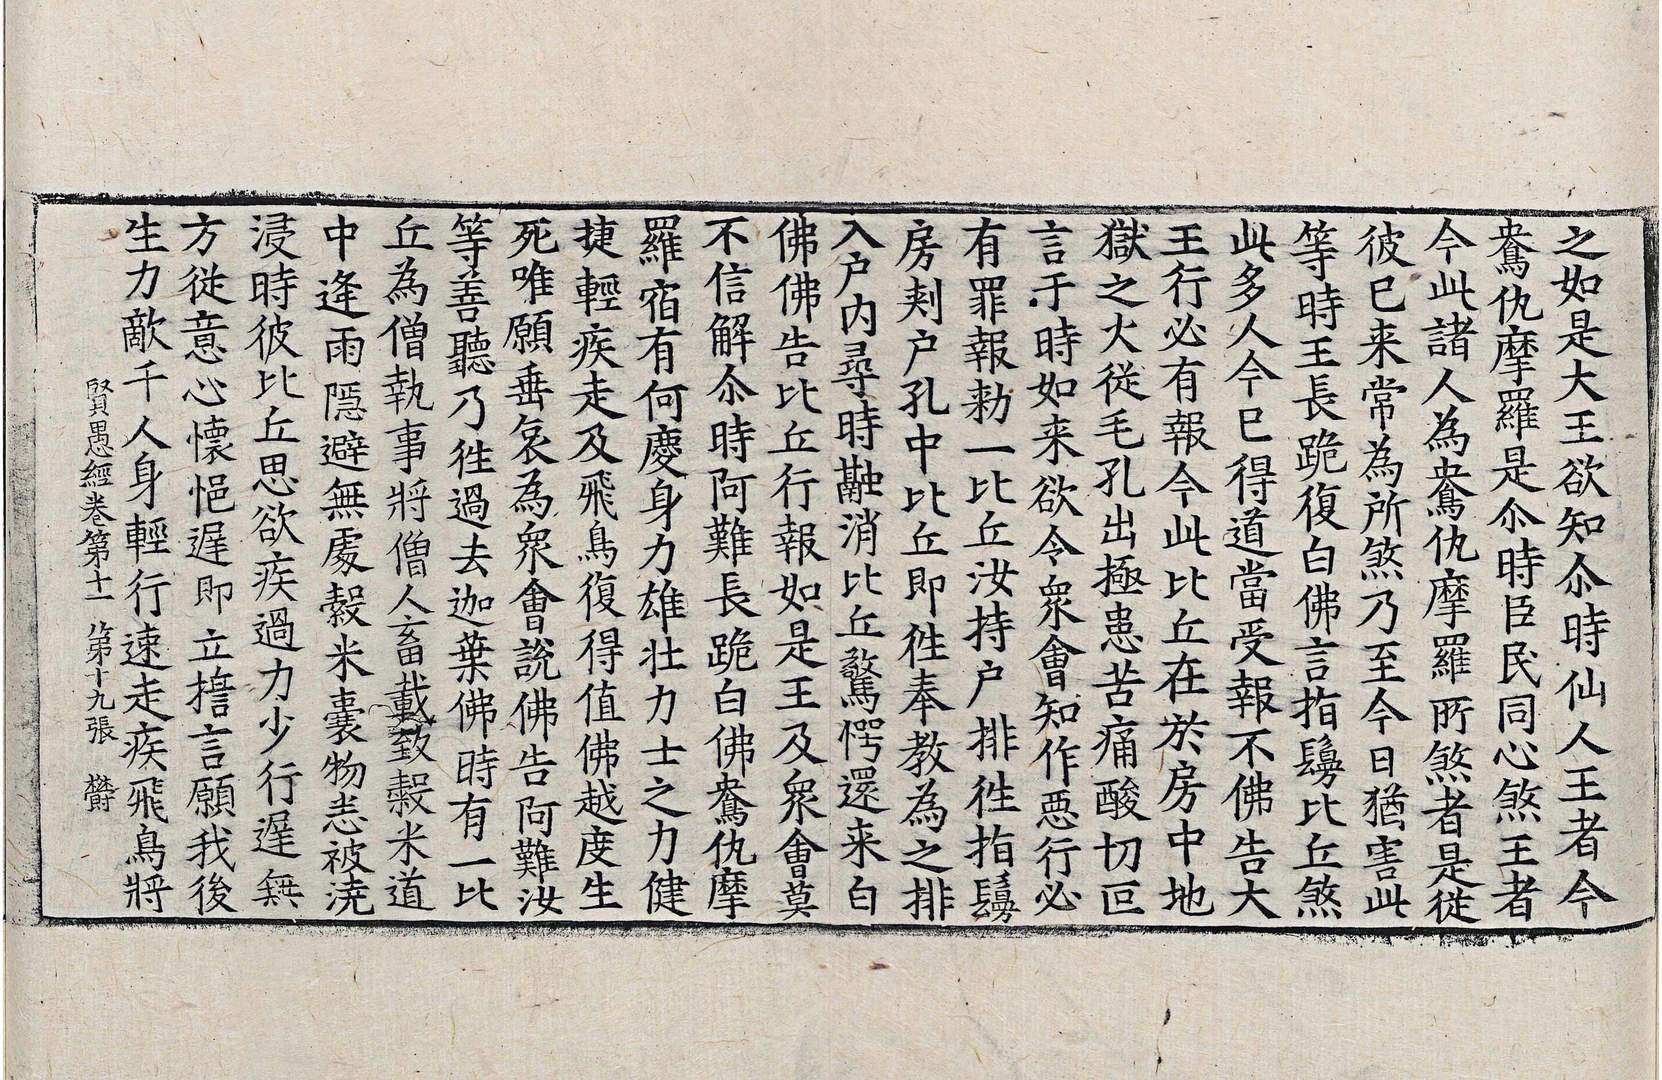 之如是大王欲知尒時仙人王者今
鴦仇摩羅是尒時臣民同心煞王者
今此諸人為鴦仇摩羅所煞者是従
彼已来常為所煞乃至今日猶害此
等時王長跪復白佛言指鬘比丘煞
此多人今已得道當受報不佛告大
王行必有報今此比丘在於房中地
獄之火從毛孔出極患苦痛酸切叵
言于時如来欲令衆會知作惡行必
有罪報勑一比丘汝持户排徃指鬘
房刾户孔中比丘即徃奉教為之排
入户内尋時融消比丘驚愕還来白
佛佛告比丘行報如是王及衆會莫
不信解尒時阿難長跪白佛鴦仇摩
羅宿有何慶身力雄壮力士之力健
捷輕疾走及飛鳥復得值佛越度生
死唯願垂哀為衆會說佛告阿難汝
等善聽乃徃過去迦葉佛時有一比
丘為僧執事將僧人畜載致穀米道
中逢雨隱避無處穀米囊物悉被澆
浸時彼比丘思欲疾過力少行遅無
方從意心懷悒遅即立擔言願我後
生力敵千人身輕行速走疾飛鳥將
賢愚經卷第十一 第十九張 欝